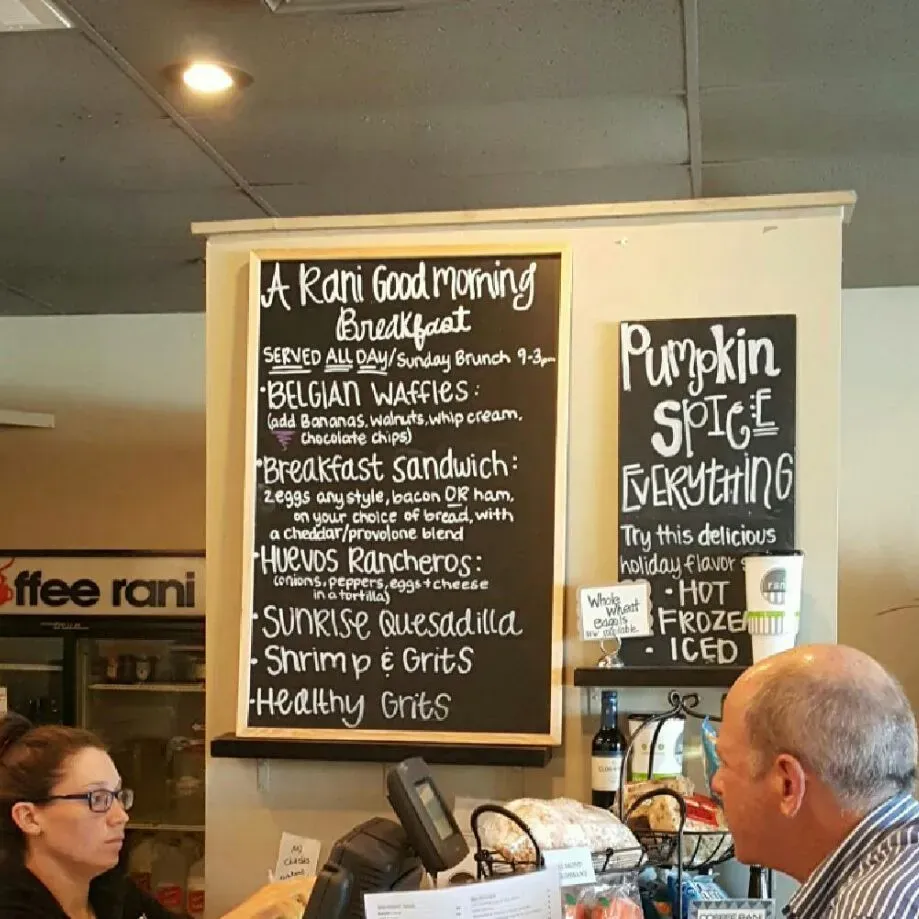 A Rani Good Morning
Breakfast
SERVED ALL DAY/Sunday Brunch 9-3pm
• BELGIAN WAFFLES:
(add Bananas, walnuts, whip cream,
chocolate chips)
• Breakfast Sandwich:
2 eggs any style, bacon OR ham,
on your choice of bread, with
a cheddar/provolone blend
• HUEVOS RANCHEROS:
(onions, peppers, eggs + cheese
in a tortilla)
• SUNRISE Quesadilla
• Shrimp & Grits
• Healthy Grits
Pumpkin
SPICE
EVERYTHING
Try this delicious
holiday flavor
• HOT
• FROZE
• ICED
Whole
Wheat
Bagels
available
rani
ffee rani